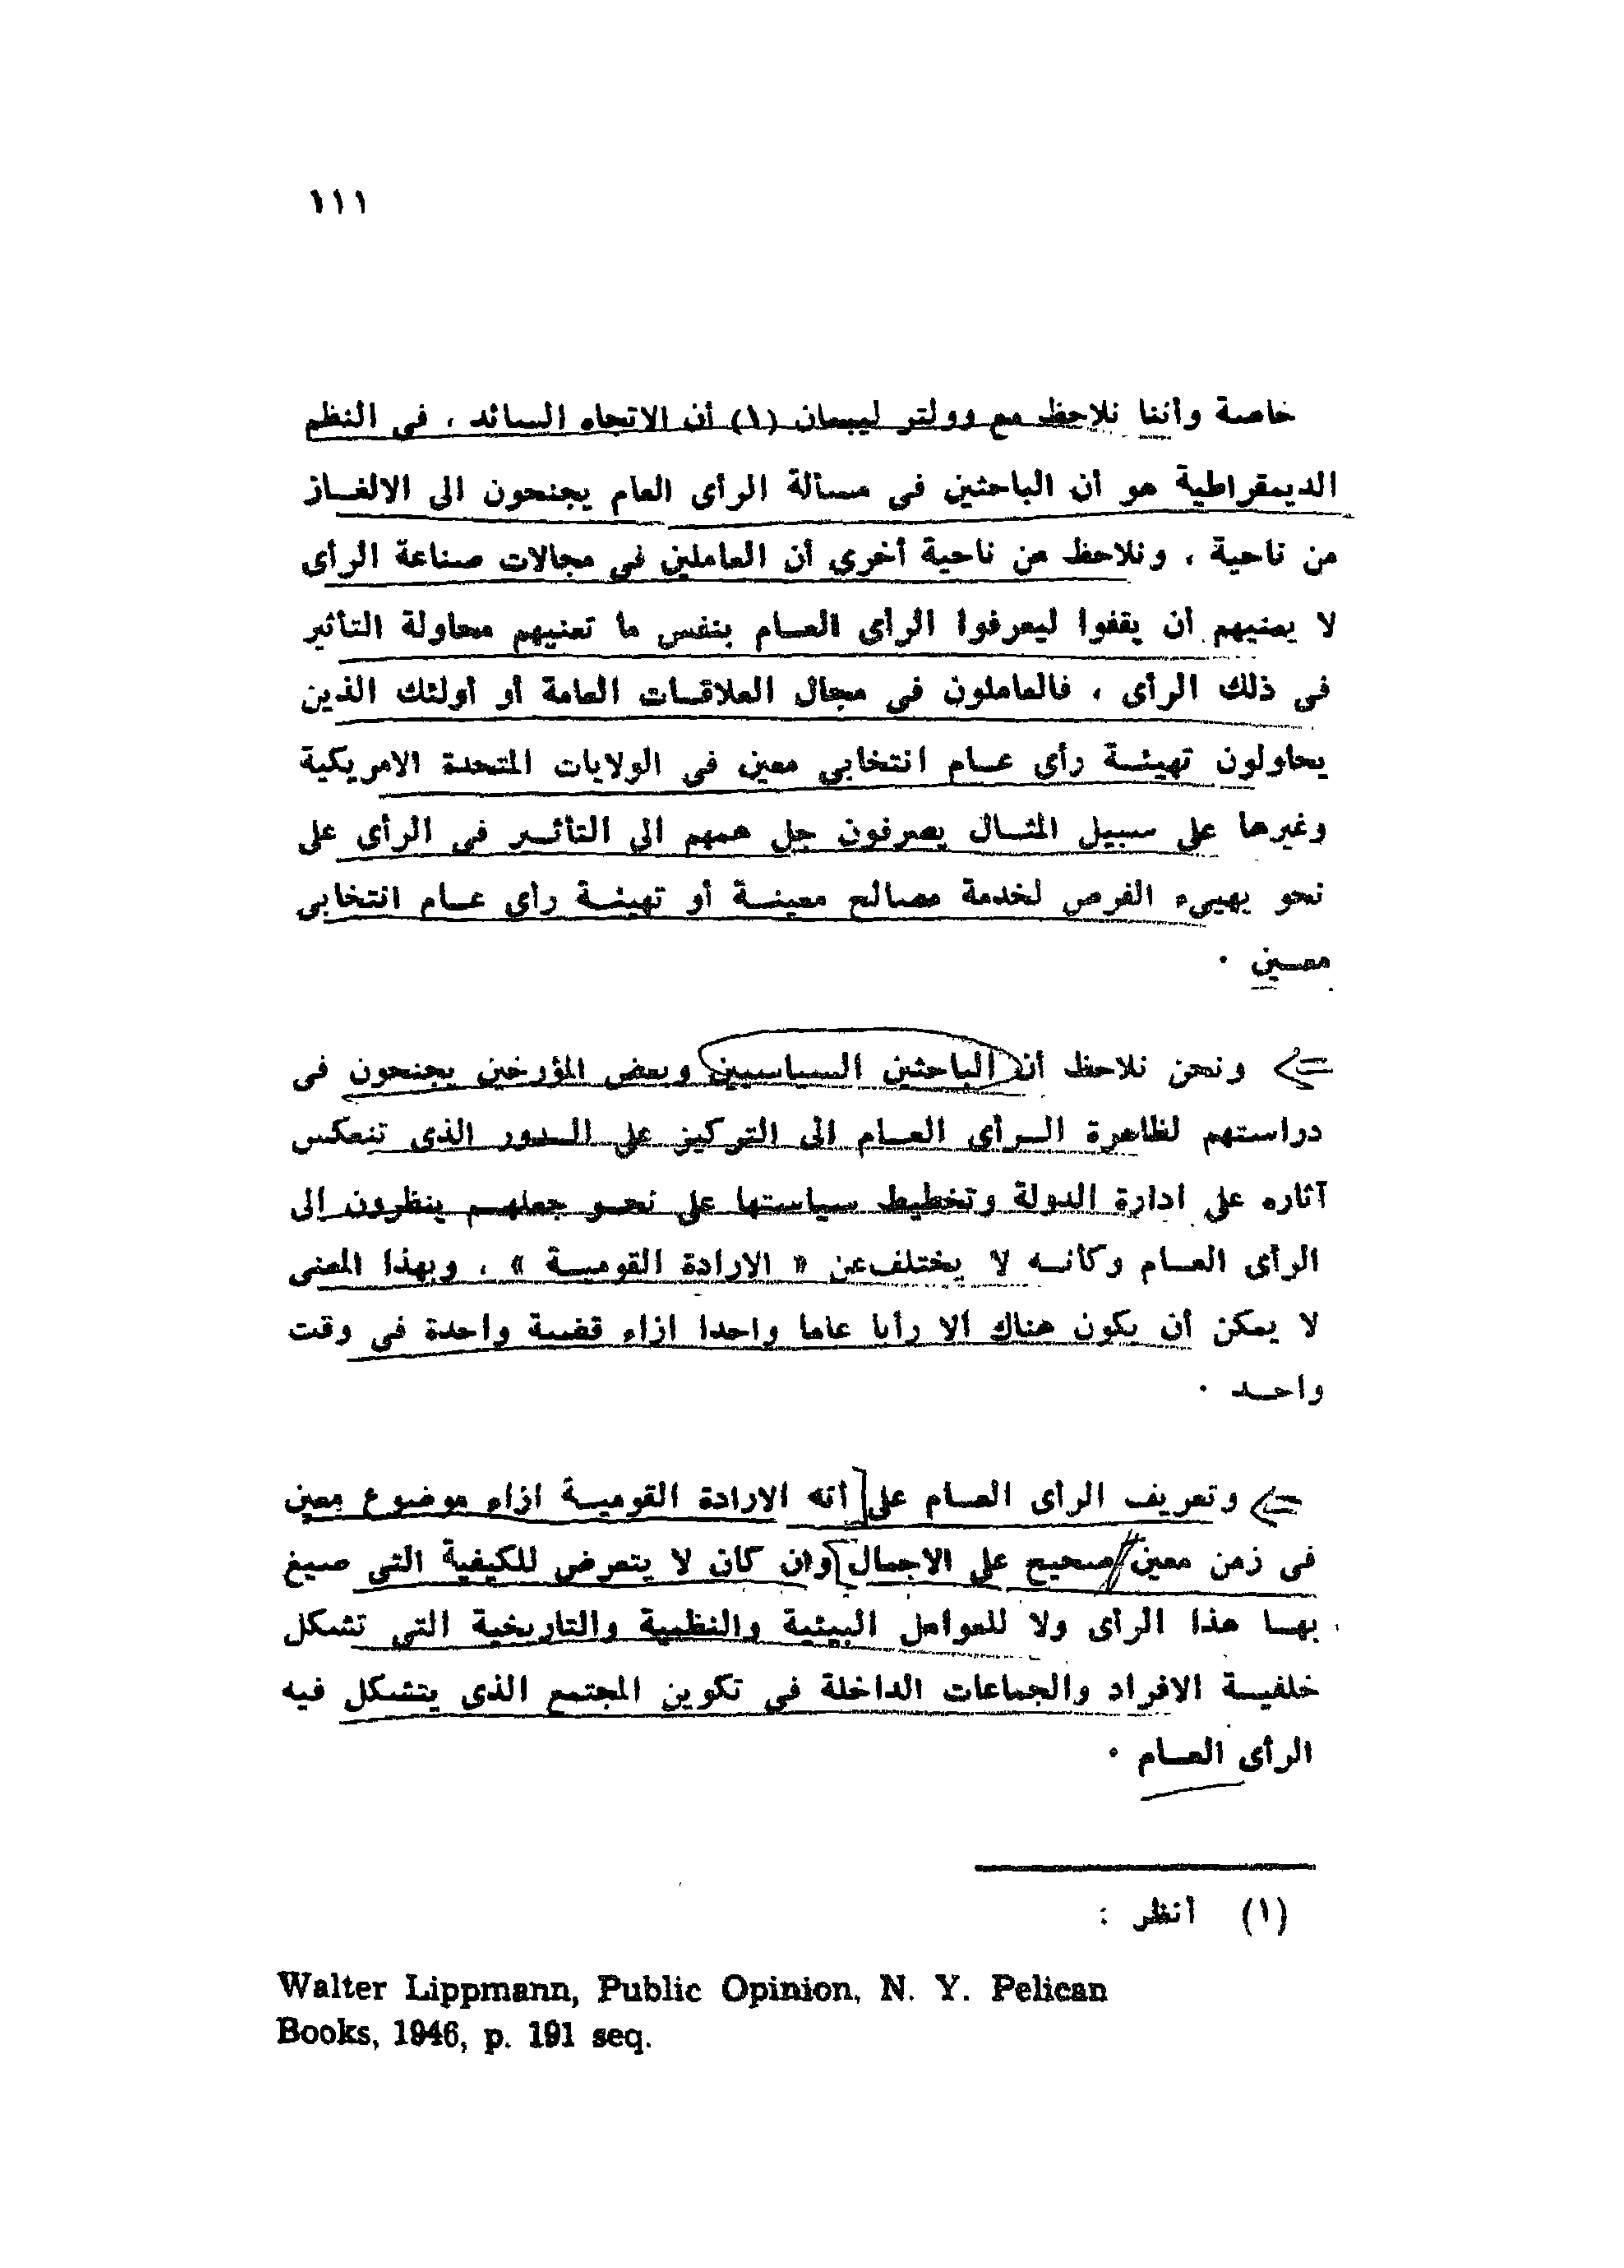 ١١١
خاصة وأننا نلاحظ مع وولتر ليبمان (١) أن الاتجاه السائد ، فى النظم
الديمقراطية هو أن الباحثين فى مسألة الرأى العام يجنحون الى الالغـاز
من ناحية ، ونلاحظ من ناحية أخرى أن العاملين فى مجالات صناعة الرأى
لا يعنيهم أن يقفوا ليعرفوا الرأى العـام بنفس ما تعنيهم محاولة التأثير
فى ذلك الرأى ، فالعاملون فى مجال العلاقـات العامة أو أولئك الذين
يحاولون تهيئـة رأى عـام انتخابى معين فى الولايات المتحدة الامريكية
وغيرها على سبيل المثـال يصرفون جل همهم الى التأثـير فى الرأى على
نحو يهيىء الفرص لخدمة مصالح معينـة أو تهيئـة رأى عـام انتخابى
معـين ٠
ونحن نلاحظ أن الباحثين السياسيين وبعض المؤرخين يجنحون فى
دراستهم لظاهرة الـرأى العـام الى التركيز على الـدور الذى تنعكس
آثاره على ادارة الدولة وتخطيط سياستها على نحـو جعلهـم ينظرون إلى
الرأى العـام وكأنـه لا يختلف عن « الارادة القوميـة » ، وبهذا المعنى
لا يمكن أن يكون هناك الا رأيا عاما واحدا ازاء قضية واحدة فى وقت
واحـد ٠
وتعريف الرأى العـام على أنه الارادة القوميـة ازاء موضوع معين
فى زمن معين صحيح على الاجمال وان كان لا يتعرض للكيفية التى صيغ
بهـا هذا الرأى ولا للعوامل البيئية والنظمية والتاريخية التى تشكل
خلفيـة الافراد والجماعات الداخلة فى تكوين المجتمع الذى يتشكل فيه
الرأى العـام ٠
(١) أنظر :
Walter Lippmann, Public Opinion, N. Y. Pelican
Books, 1946, p. 191 seq.